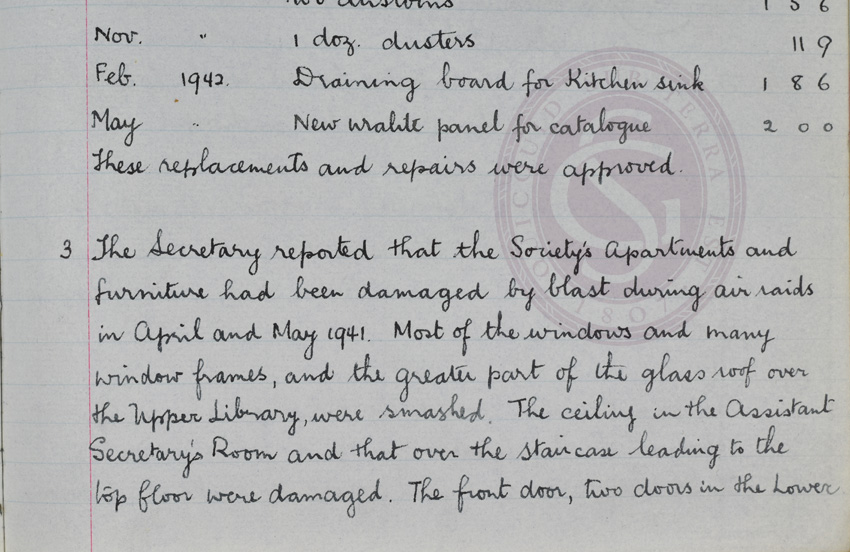 two dustbins 1 5 6
Nov. " 1 doz. dusters 11 9
Feb. 1942. Draining board for Kitchen sink 1 8 6
May " New uralite panel for catalogue 2 0 0
These replacements and repairs were approved.
3 The Secretary reported that the Society's Apartments and
furniture had been damaged by blast during air raids
in April and May 1941. Most of the windows and many
window frames, and the greater part of the glass roof over
the Upper Library, were smashed. The ceiling in the Assistant
Secretary's Room and that over the staircase leading to the
top floor were damaged. The front door, two doors in the Lower